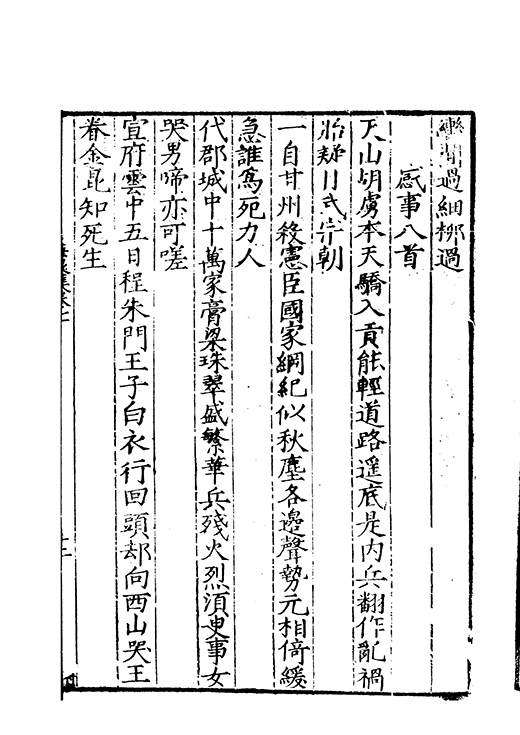 過細柳過
感事八首
天山胡虜本天驕入貢能輕道路遥底是内兵翻作亂禍
胎疑武宗朝
一自甘州殺憲臣國家綱紀似秋塵各邊聲勢元相倚緩
急誰爲死力人
代郡城中十萬家膏梁珠翠盛繁華兵殘火烈須臾事女
哭男啼亦可嗟
宣府雲中五日程朱門王子白衣行回頭却向西山哭王
眷金昆知死生